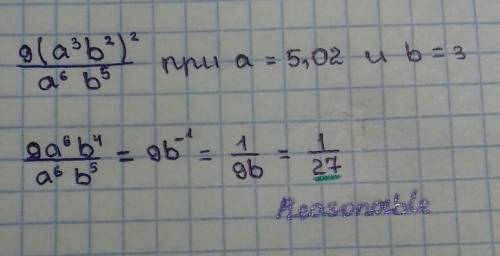 9(a³b²)² / a⁶ b⁵ при a = 5,02 и b = 3
9a⁶b⁴ / a⁶ b⁵ = 9b⁻¹ = 1 / 9b = 1 / 27
Reasonable